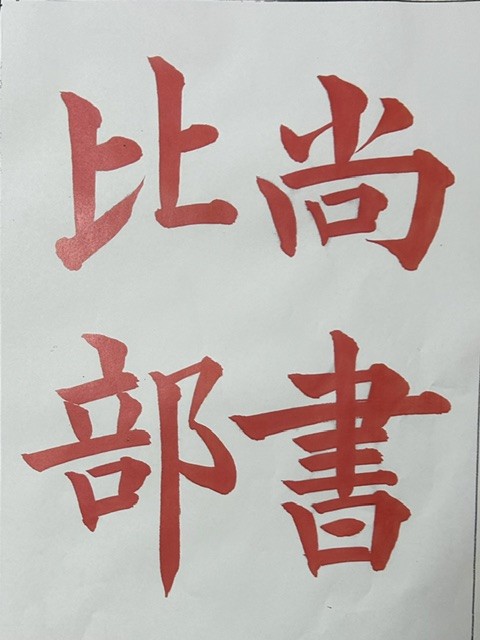 尚書
比部